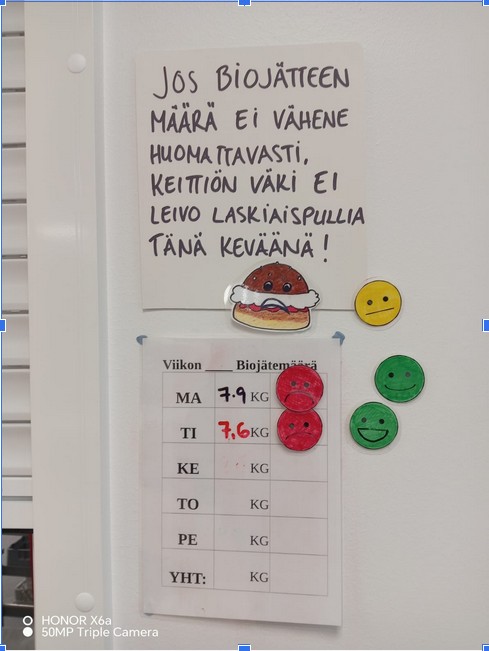 JOS BIOJÄTTEEN
MÄÄRÄ EI VÄHENE
HUOMATTAVASTI,
KEITTIÖN VÄKI EI
LEIVO LASKIAISPULLIA
TÄNÄ KEVÄÄNÄ!
Viikon ____ Biojätemäärä
MA 7.9 KG
TI 7,6 KG
KE KG
TO KG
PE KG
YHT: KG
HONOR X6a
50MP Triple Camera